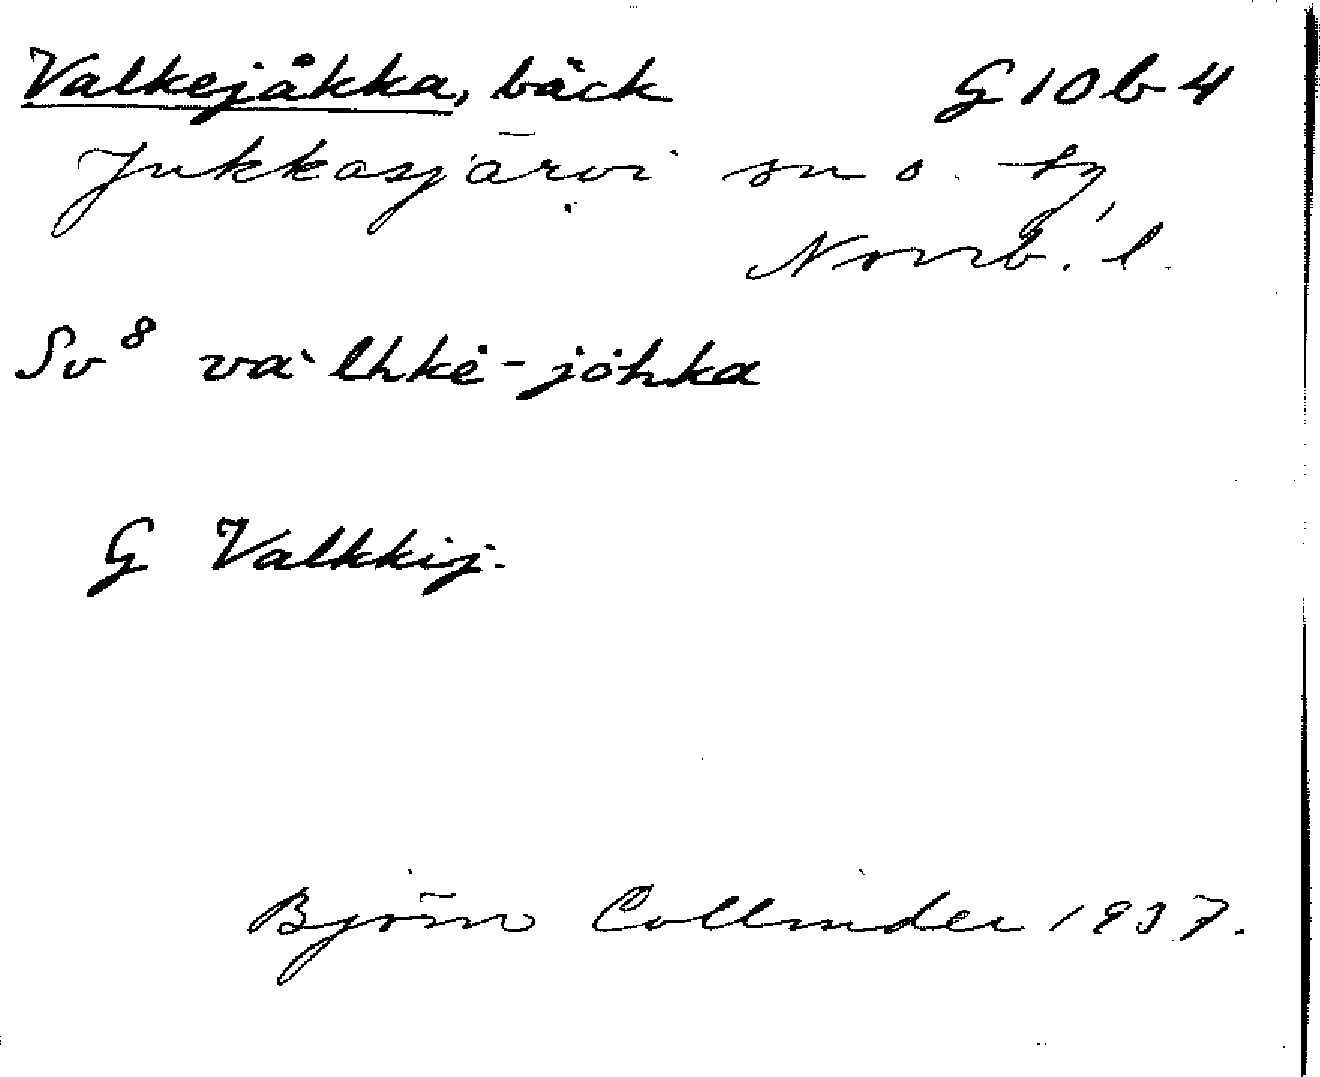 Valkejåkka, bäck G 10 b 4
Jukkasjärvi sn o. tg,
Norrb. l.
Sv⁸ và lhkė-jȯhka
G Valkkij.
Björn Collinder 1937.